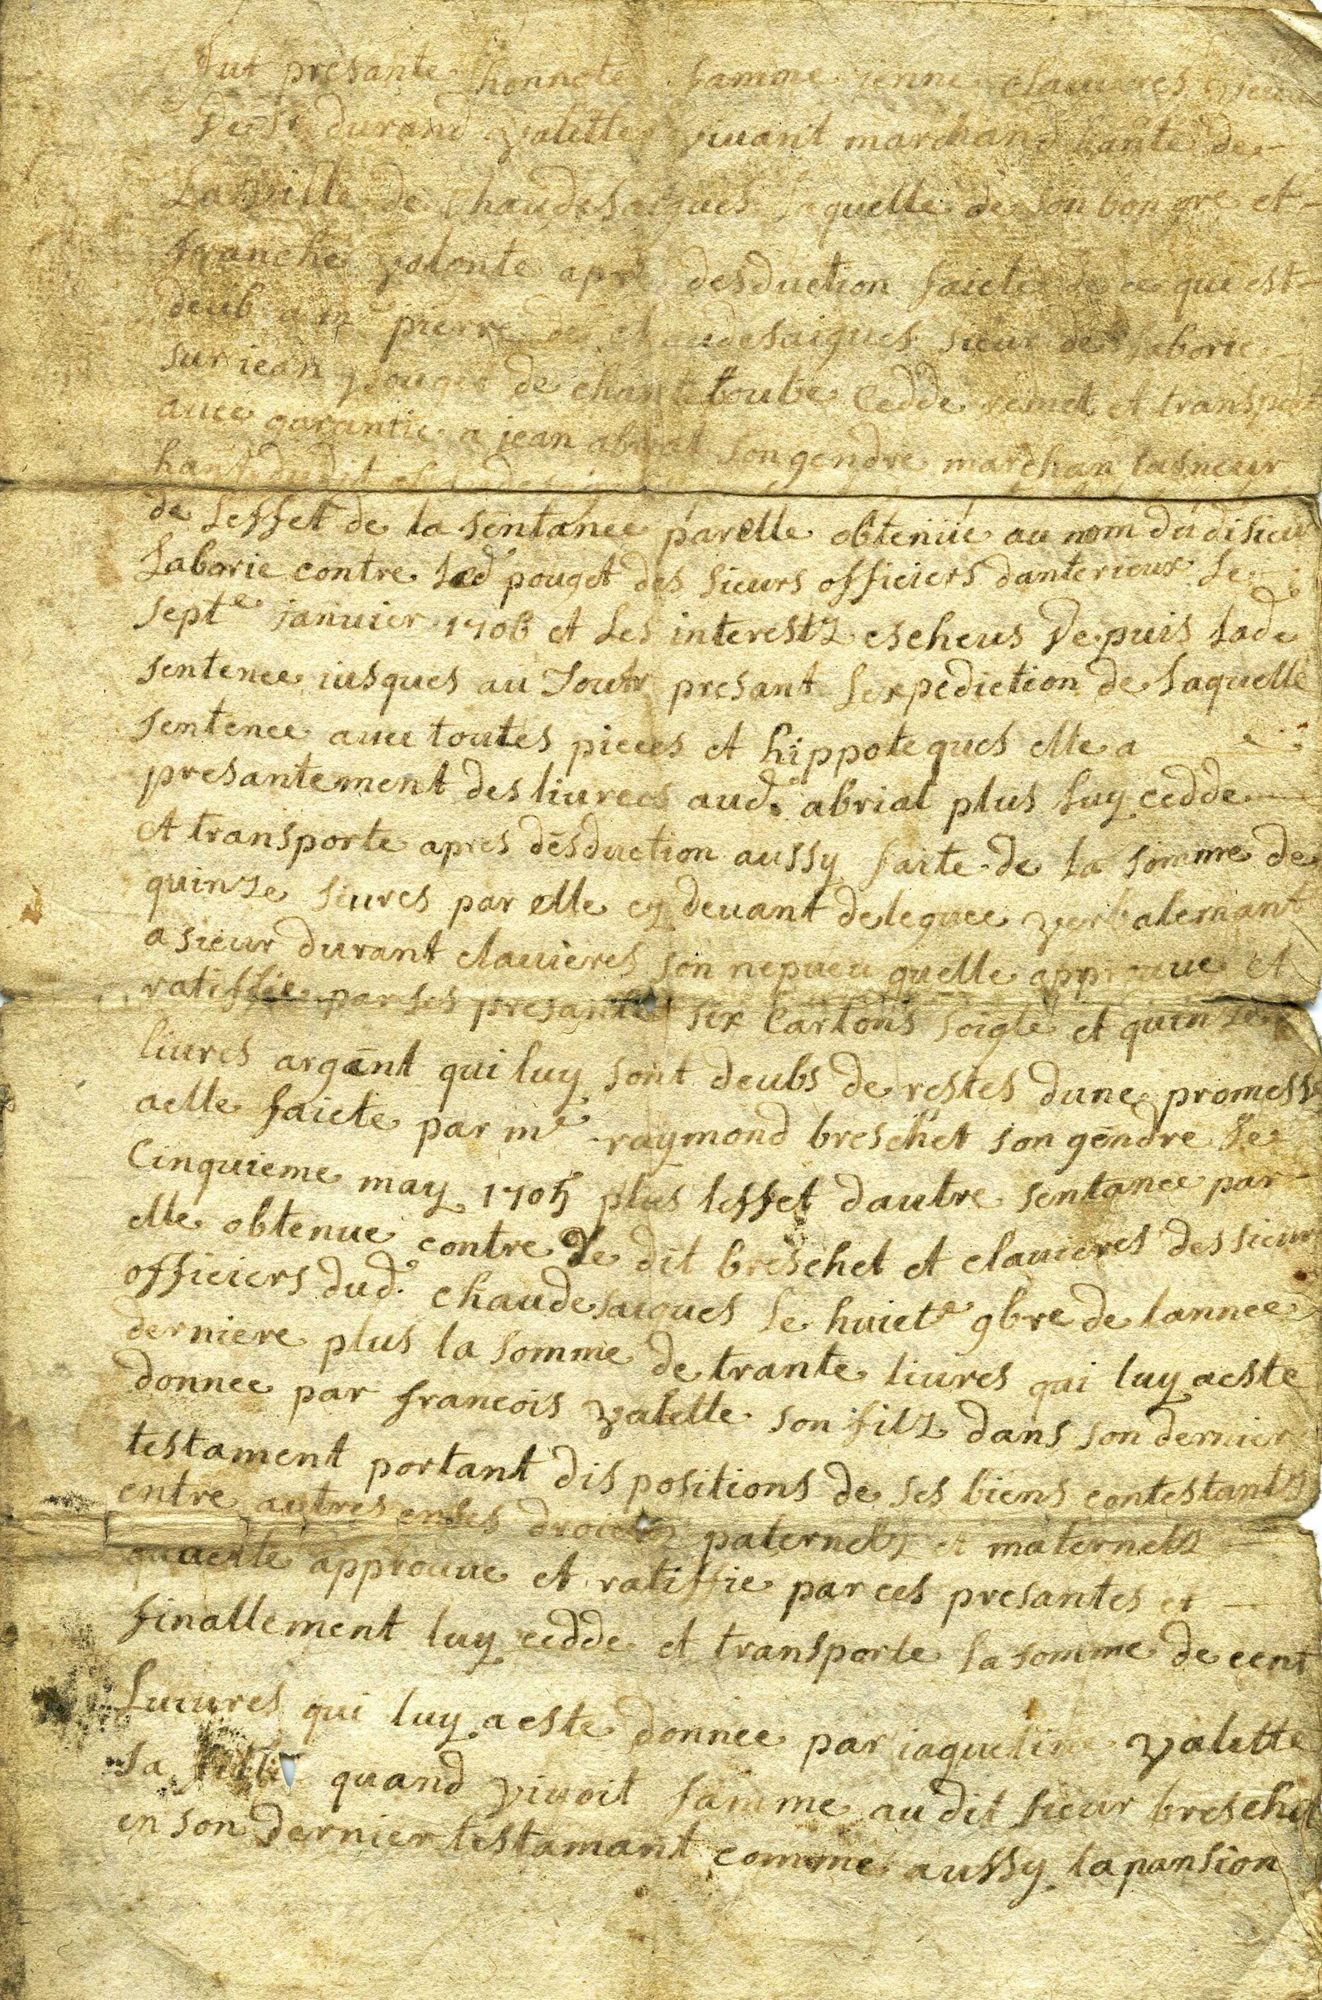 fut presante honnete famme jenne clavieres veuve
de sr durand valette vivant marchand hante de
la ville de chaudesaigues laquelle de son bon gre et
franche volonte apres desduction faicte de ce qui est
deub a me pierre de chaudesaigues sieur de laborie
sur jean pouget de chante loube cedde remet et transporte
avec garantie a jean abrial son gendre marchan tasneur
hant dudit
de leffet de la sentance par elle obtenüe au nom du di sieur
Laborie contre led pouget des sieurs officiers danterieux le
septe janvier 1706 et les interestz escheus depuis lade
sentence iusques au Jour presant lexpediction de laquelle
sentence avec toutes pieces et hippoteques elle a
presantement des livrees aud. abrial plus luy cedde
et transporte apres desduction aussy faite de la somme de
quinze livres par elle cy devant deleguee verbalemant
a sieur durant clavieres son nepveu quelle approuve et
ratiffie par ses presantes six cartons soigle et quinze
livres argent qui luy sont deubs de restes dune promesse
a elle faicte par me raymond breschet son gendre le
Cinquieme may 1705 plus leffet dautre sentance par
elle obtenue contre Le dit breschet et clavieres des sieurs
officiers dud. chaudesaigues le huicte 9bre de lannee
derniere plus la somme de trante livres qui luy a este
donnee par francois valette son filz dans son dernier
testament portant dis positions de ses biens contestants
entre autres en ses droictz paternelz et maternelz
quelle approuve et ratiffie par ces presantes et
finallement luy cedde et transporte la somme de cent
Livres qui luy a este donnee par iaqueline valette
sa fille quand vivoit famme audit sieur breschet
en son dernier testamant comme aussy la pansion